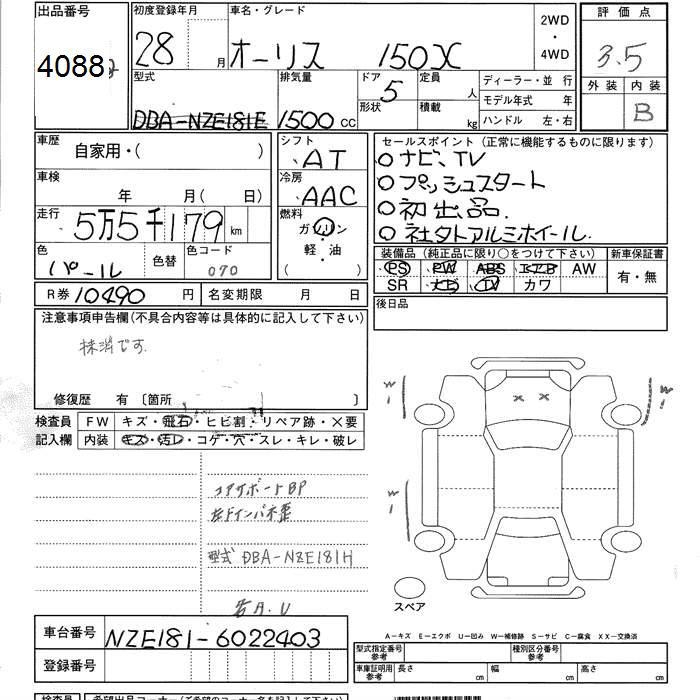 出品番号 初度登録年月 車名・グレード 2WD・4WD 評価点
4088 28 月 オーリス 150X 3.5
型式 排気量 ドア 5 定員 人 ディーラー・並 行 外装 内装
形状 積載 kg モデル年式 年
DBA-NZE181E 1500 CC ハンドル 左・右 B
車歴 自家用・( ) シフト AT セールスポイント (正常に機能するものに限ります)
○ナビ、TV
車検 年 月( 日) 冷房 AAC ○プッシュスタート
○初出品.
走行 5万5千179 km 燃料 ガソリン 軽・油 ( ) ○社外アルミホイール.
色 パール 色替 色コード 070 装備品 (純正品に限り○をつけて下さい) 新車保証書
PS PW ABS エアB AW 有・無
R券 10490 円 名変期限 月 日 SR ナビ TV カワ
注意事項申告欄(不具合内容等は具体的に記入して下さい) 後日品
抹消です.
修復歴 有 〔箇所 〕
検査員 FW キズ・飛石・ヒビ割・リペア跡・×要
記入欄 内装 キズ・汚レ・コゲ・穴・スレ・キレ・破レ
W1 W1
××
W1
コアサポートBP
左Fインパネ歪
型式 DBA-NZE181H
若A.U
スペア
車台番号 NZE181-6022403
A-キズ E-エクボ U-凹み W-補修跡 S-サビ C-腐食 XX-交換済
登録番号 型式指定番号 参考 種別区分番号 参考
車庫証明用 参考 長さ cm 幅 cm 高さ cm
検査員 希望出品コーナー